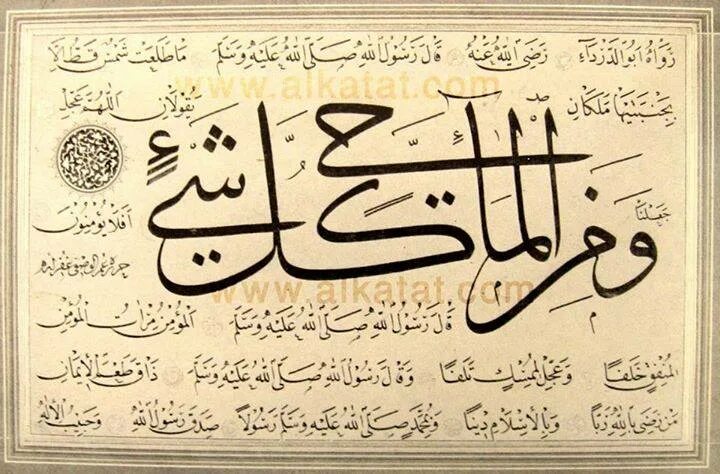 رَوَاهُ اَبُو الدَّرْدَاءِ رَضِىَ اللهُ عَنْهُ قَالَ رَسُولُ اللهِ صَلَّى اللهُ عَلَيْهِ وَسَلَّمَ مَا طَلَعَتْ شَمْسٌ قَطُّ اِلَّا
www.alkatat.com
بِجَنْبَتَيْهَا مَلَكَانِ يَقُولَانِ اَللّٰهُمَّ عَجِّلْ
وَجَعَلْنَا مِنَ الْمَاءِ كُلَّ شَئٍ حَىٍّ
اَفَلَا يُؤْمِنُونَ
www.alkatat.com
قَالَ رَسُولُ اللهِ صَلَّى اللهُ عَلَيْهِ وَسَلَّمَ اَلْمُؤْمِنُ مِرْاٰتُ الْمُؤْمِنِ
لِمُنْفِقٍ خَلَفًا وَعَجِّلْ لِمُمْسِكٍ تَلَفًا وَقَالَ رَسُولُ اللهِ صَلَّى اللهُ عَلَيْهِ وَسَلَّمَ ذَاقَ طَعْمَ الْاِيمَانِ
مَنْ رَضِىَ بِاللهِ رَبًّا وَبِالْاِسْلَامِ دِينًا وَبِمُحَمَّدٍ صَلَّى اللهُ عَلَيْهِ وَسَلَّمَ رَسُولًا صَدَقَ رَسُولُ اللهِ وَحَبِيبُ الْاِلٰهِ